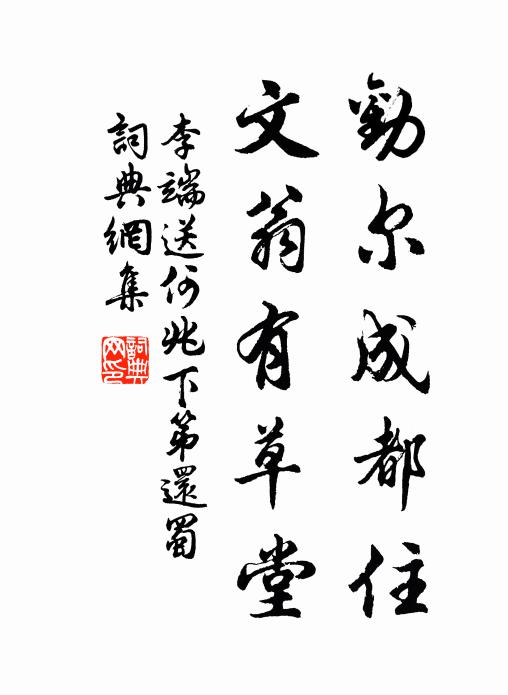 勸尔成都住
文翁有草堂
李端送何兆下第還蜀
詞典網集
詞典網印